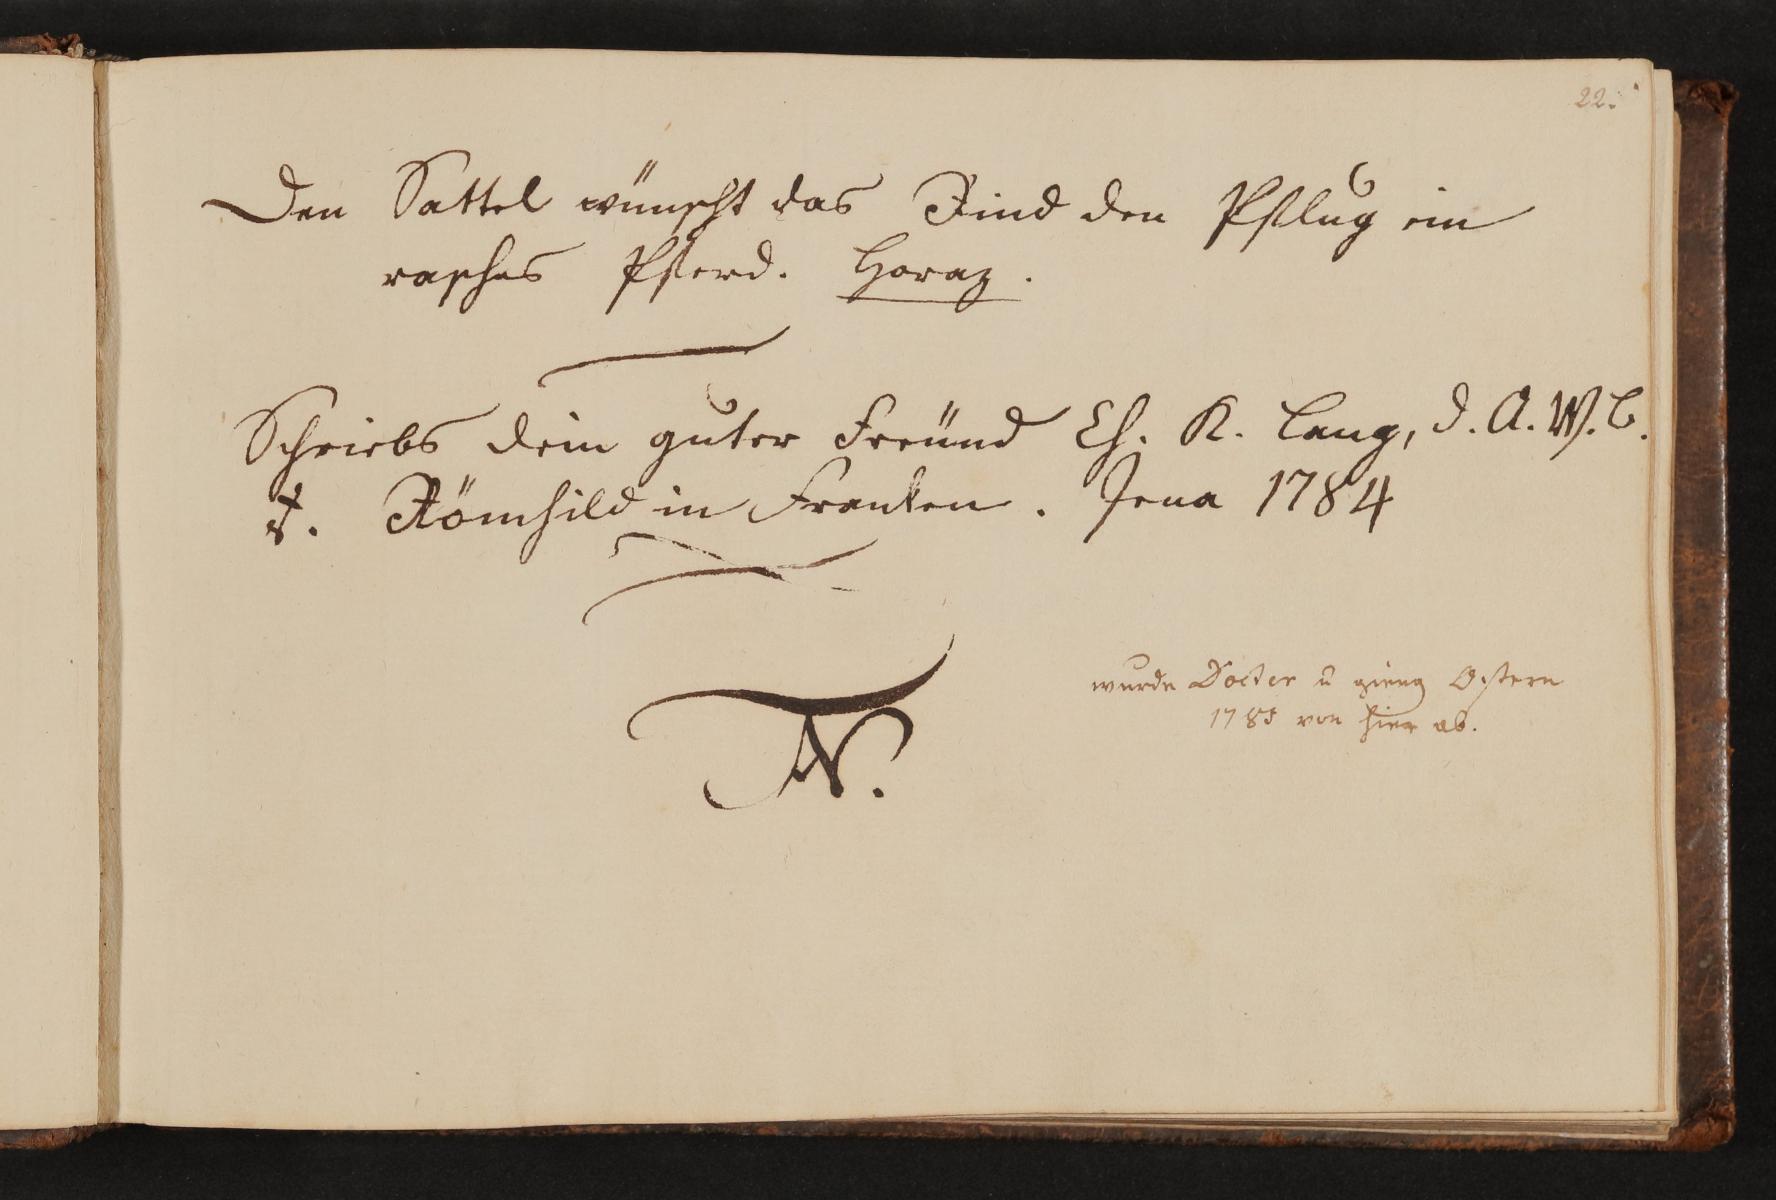 22.
Den Sattel wünscht das Rind den Pflug ein
rasches Pferd. Horaz.
Schriebs dein guter Freünd Ch. K. Lang, d. A. W. B.
v. Römhild in Franken. Jena 1784
wurde Docter u gieng Ostern
1785 von hier ab.
N.